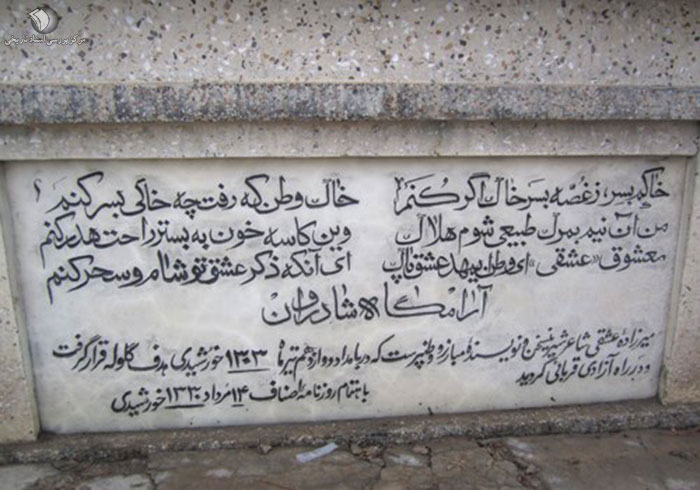 مرکز بررسی اسناد تاریخی
خاکم بسر، ز غصّه بسر خاک اگر کُنم خاک وطن که رفت چه خاکی بسر کنم؟
من آن نیم بمرگ طبیعی شوم هلاک وین کاسه خون به بستر راحت هدر کنم
معشوق «عشقی» ای وطن ای مهد عشق پاک ای آنکه ذکر عشق تو شام و سحر کنم
آرامگاه شادروان
میرزاده عشقی شاعر شیرین سخن و نویسندهٔ مبارز و وطنپرست که در بامداد دوازدهم تیرماه ۱۳۰۳ خورشیدی هدف گلوله قرار گرفت
و در راه آزادی قربانی گردید
باهتمام روزنامه اصناف ۱۴ مرداد ۱۳۳۰ خورشیدی